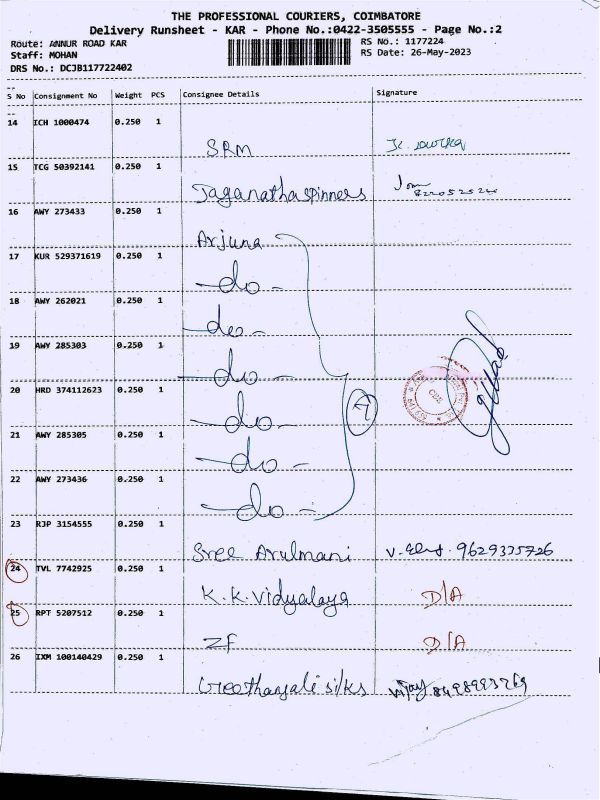 THE PROFESSIONAL COURIERS, COIMBATORE
Delivery Runsheet - KAR - Phone No.:0422-3505555 - Page No.:2
Route: ANNUR ROAD KAR
RS No.: 1177224
Staff: MOHAN
RS Date: 26-May-2023
DRS No.: DCJB117722402
S No Consignment No Weight PCS Consignee Details Signature
14 ICH 1000474 0.250 1
SRM
15 TCG 50392141 0.250 1
Jaganatha spinners
16 AWY 273433 0.250 1
Arjuna
17 KUR 529371619 0.250 1
-do-
18 AWY 262021 0.250 1
-do-
19 AWY 285303 0.250 1
-do-
20 HRD 374112623 0.250 1
-do-
21 AWY 285305 0.250 1
-do-
22 AWY 273436 0.250 1
-do-
23 RJP 3154555 0.250 1
Sree Arulmani 9629335726
24 TVL 7742925 0.250 1
K.K. Vidyalaya D/A
25 RPT 5207512 0.250 1
ZF D/A
26 IXM 100140429 0.250 1
Geethanjali silks vijay